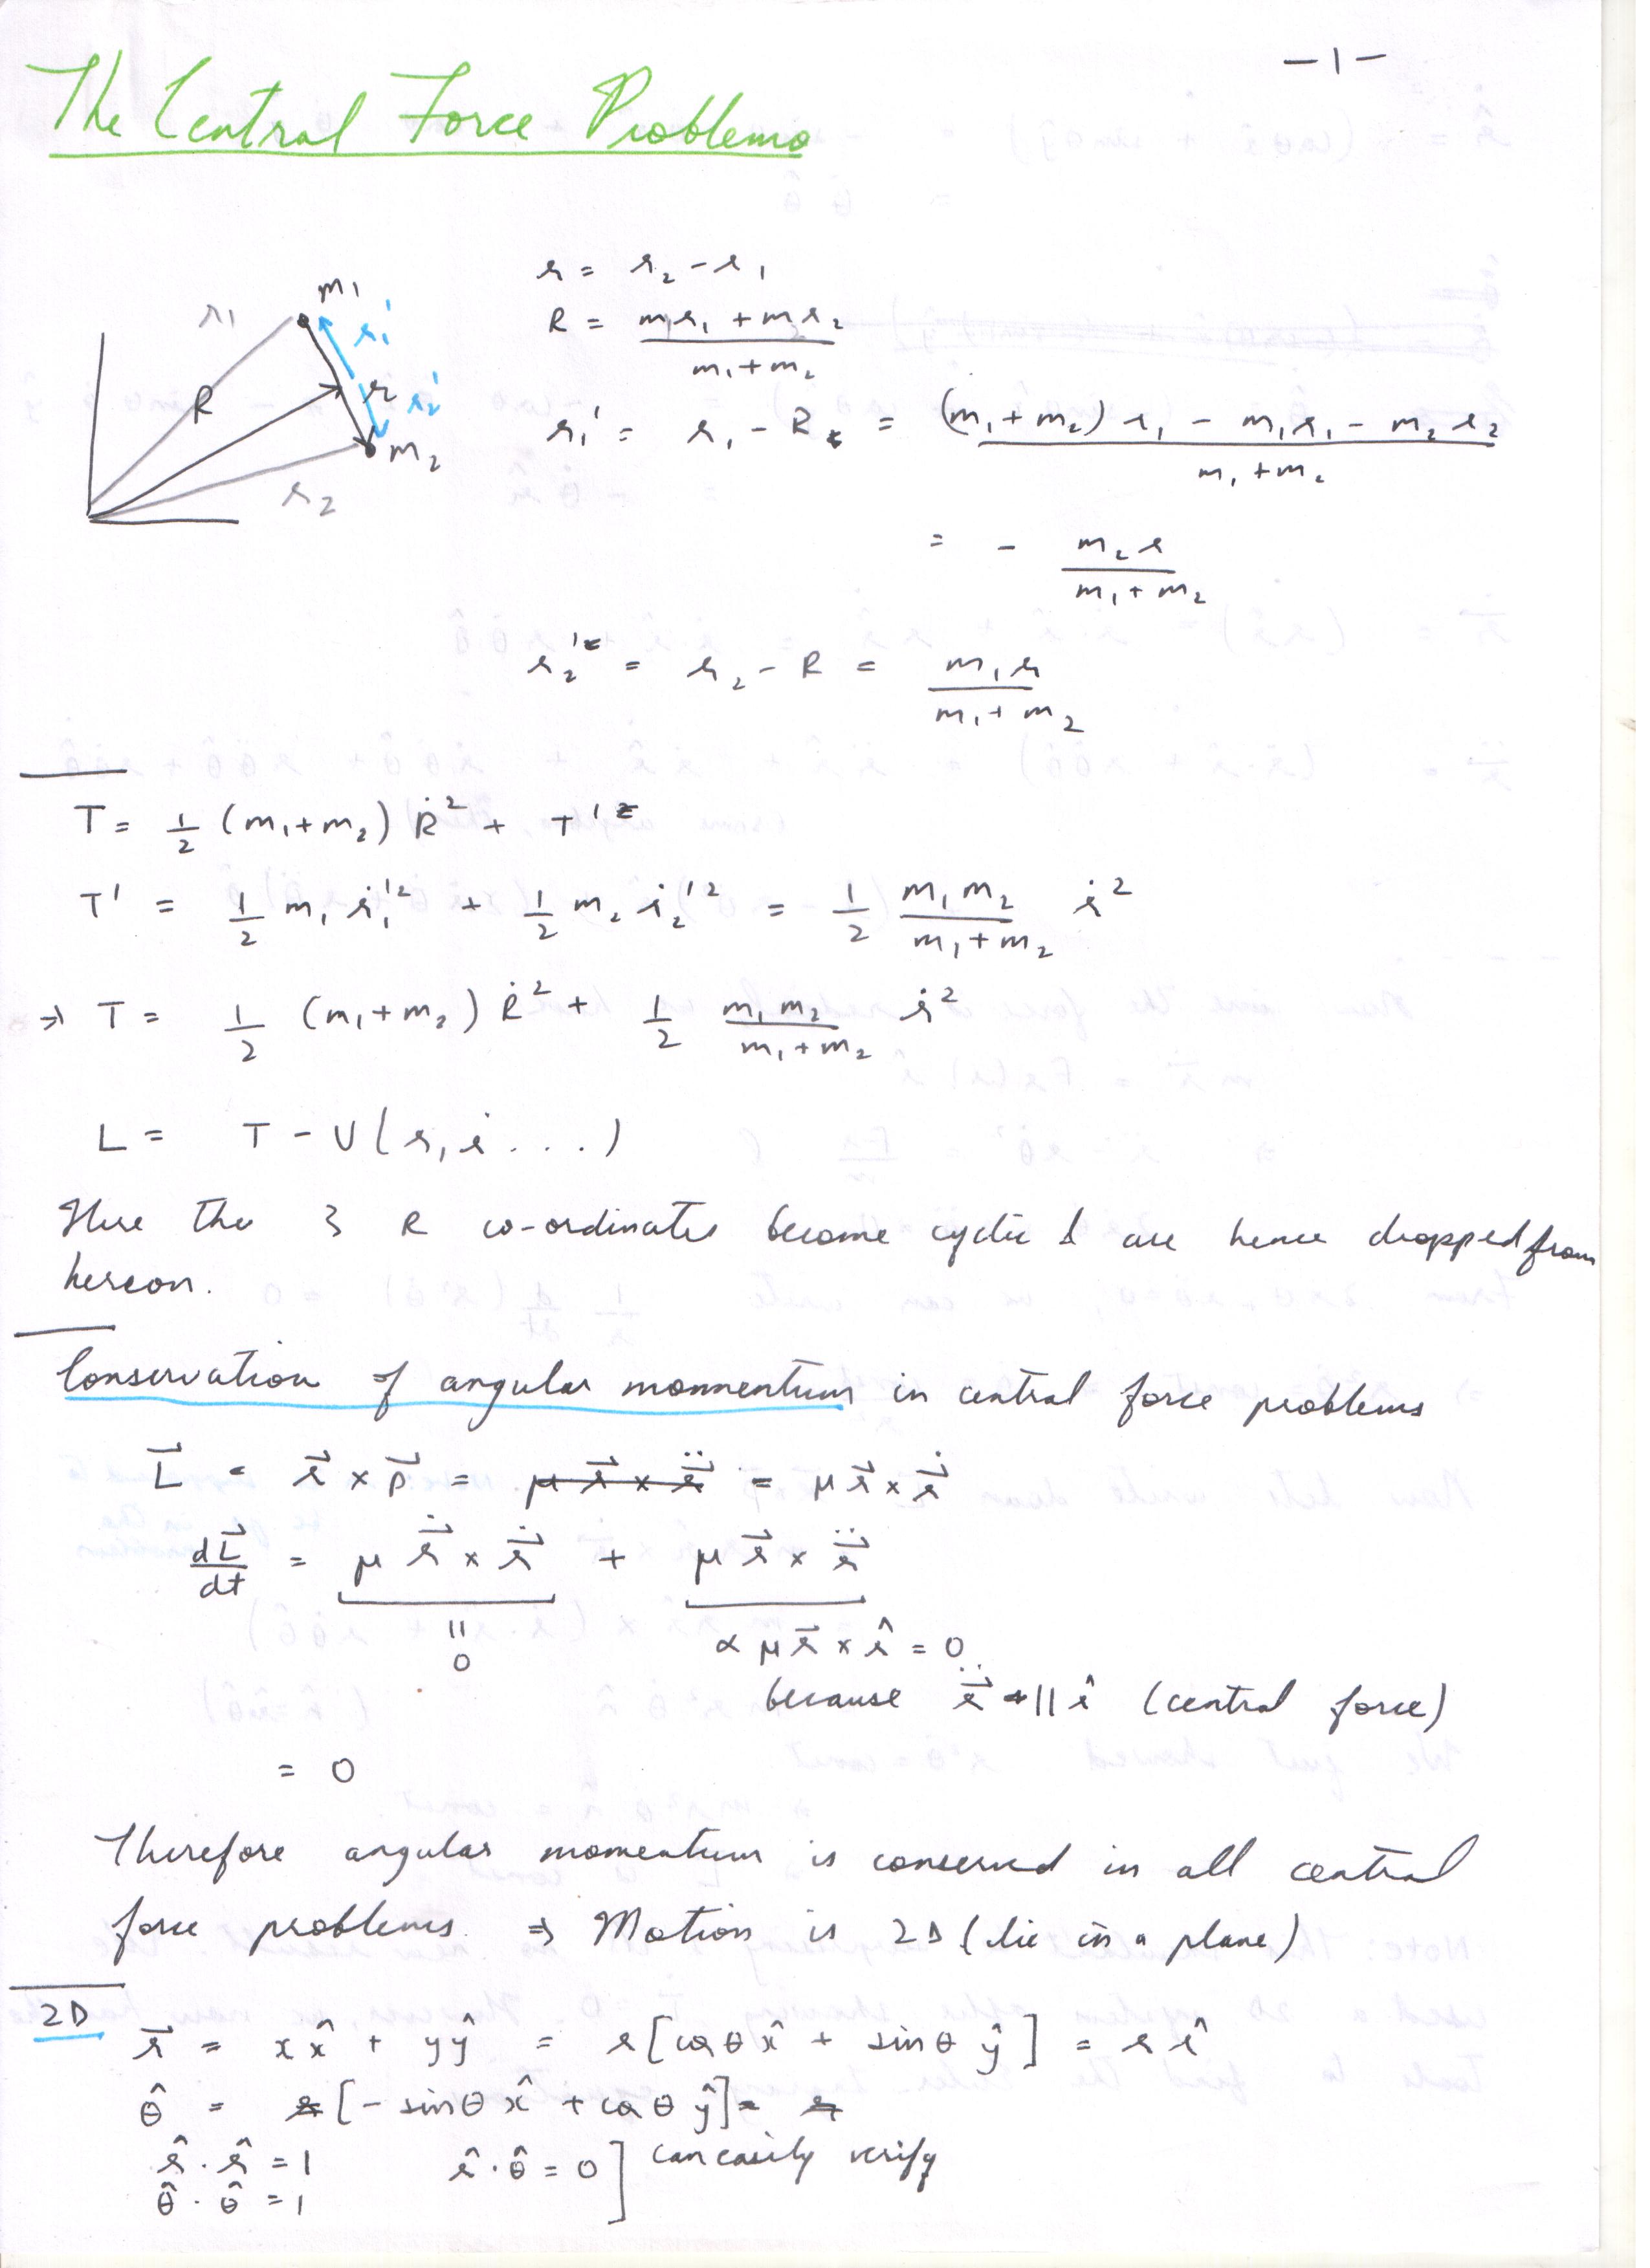 -1-
The Central Force Problems
m₁
r₁
r₁'
R
r
r₂'
m₂
r₂
r = r₂ - r₁
R = (m₁r₁ + m r₂)/(m₁+m₂)
r₁' = r₁ - R = ((m₁+m₂) r₁ - m₁r₁ - m₂ r₂)/(m₁+m₂)
= - m₂ r/(m₁+m₂)
r₂' = r₂ - R = m₁ r/(m₁+m₂)
T = ½ (m₁+m₂) Ṙ² + T'
T' = ½ m₁ ṙ₁'² + ½ m₂ ṙ₂'² = ½ (m₁ m₂)/(m₁+m₂) ṙ²
⇒ T = ½ (m₁+m₂) Ṙ² + ½ (m₁ m₂)/(m₁+m₂) ṙ²
L = T - U(r, ṙ ...)
Here the 3 R co-ordinates become cyclic & are hence dropped from
hereon.
Conservation of angular momentum in central force problems
L⃗ = r⃗ × p⃗ = μ r⃗ × r⃗̈ = μ r⃗ × r⃗̇
dL⃗/dt = μ r⃗̇ × r⃗̇ + μ r⃗ × r⃗̈
|| 0
∝ μ r⃗ × r̂ = 0
because r⃗̈ || r̂ (central force)
= 0
Therefore angular momentum is conserved in all central
force problems. ⇒ Motion is 2D (lie in a plane)
2D
r⃗ = x x̂ + y ŷ = r [cos θ x̂ + sin θ ŷ] = r r̂
θ̂ = [- sin θ x̂ + cos θ ŷ]
r̂ . r̂ = 1 r̂ . θ̂ = 0 ] can easily verify
θ̂ . θ̂ = 1